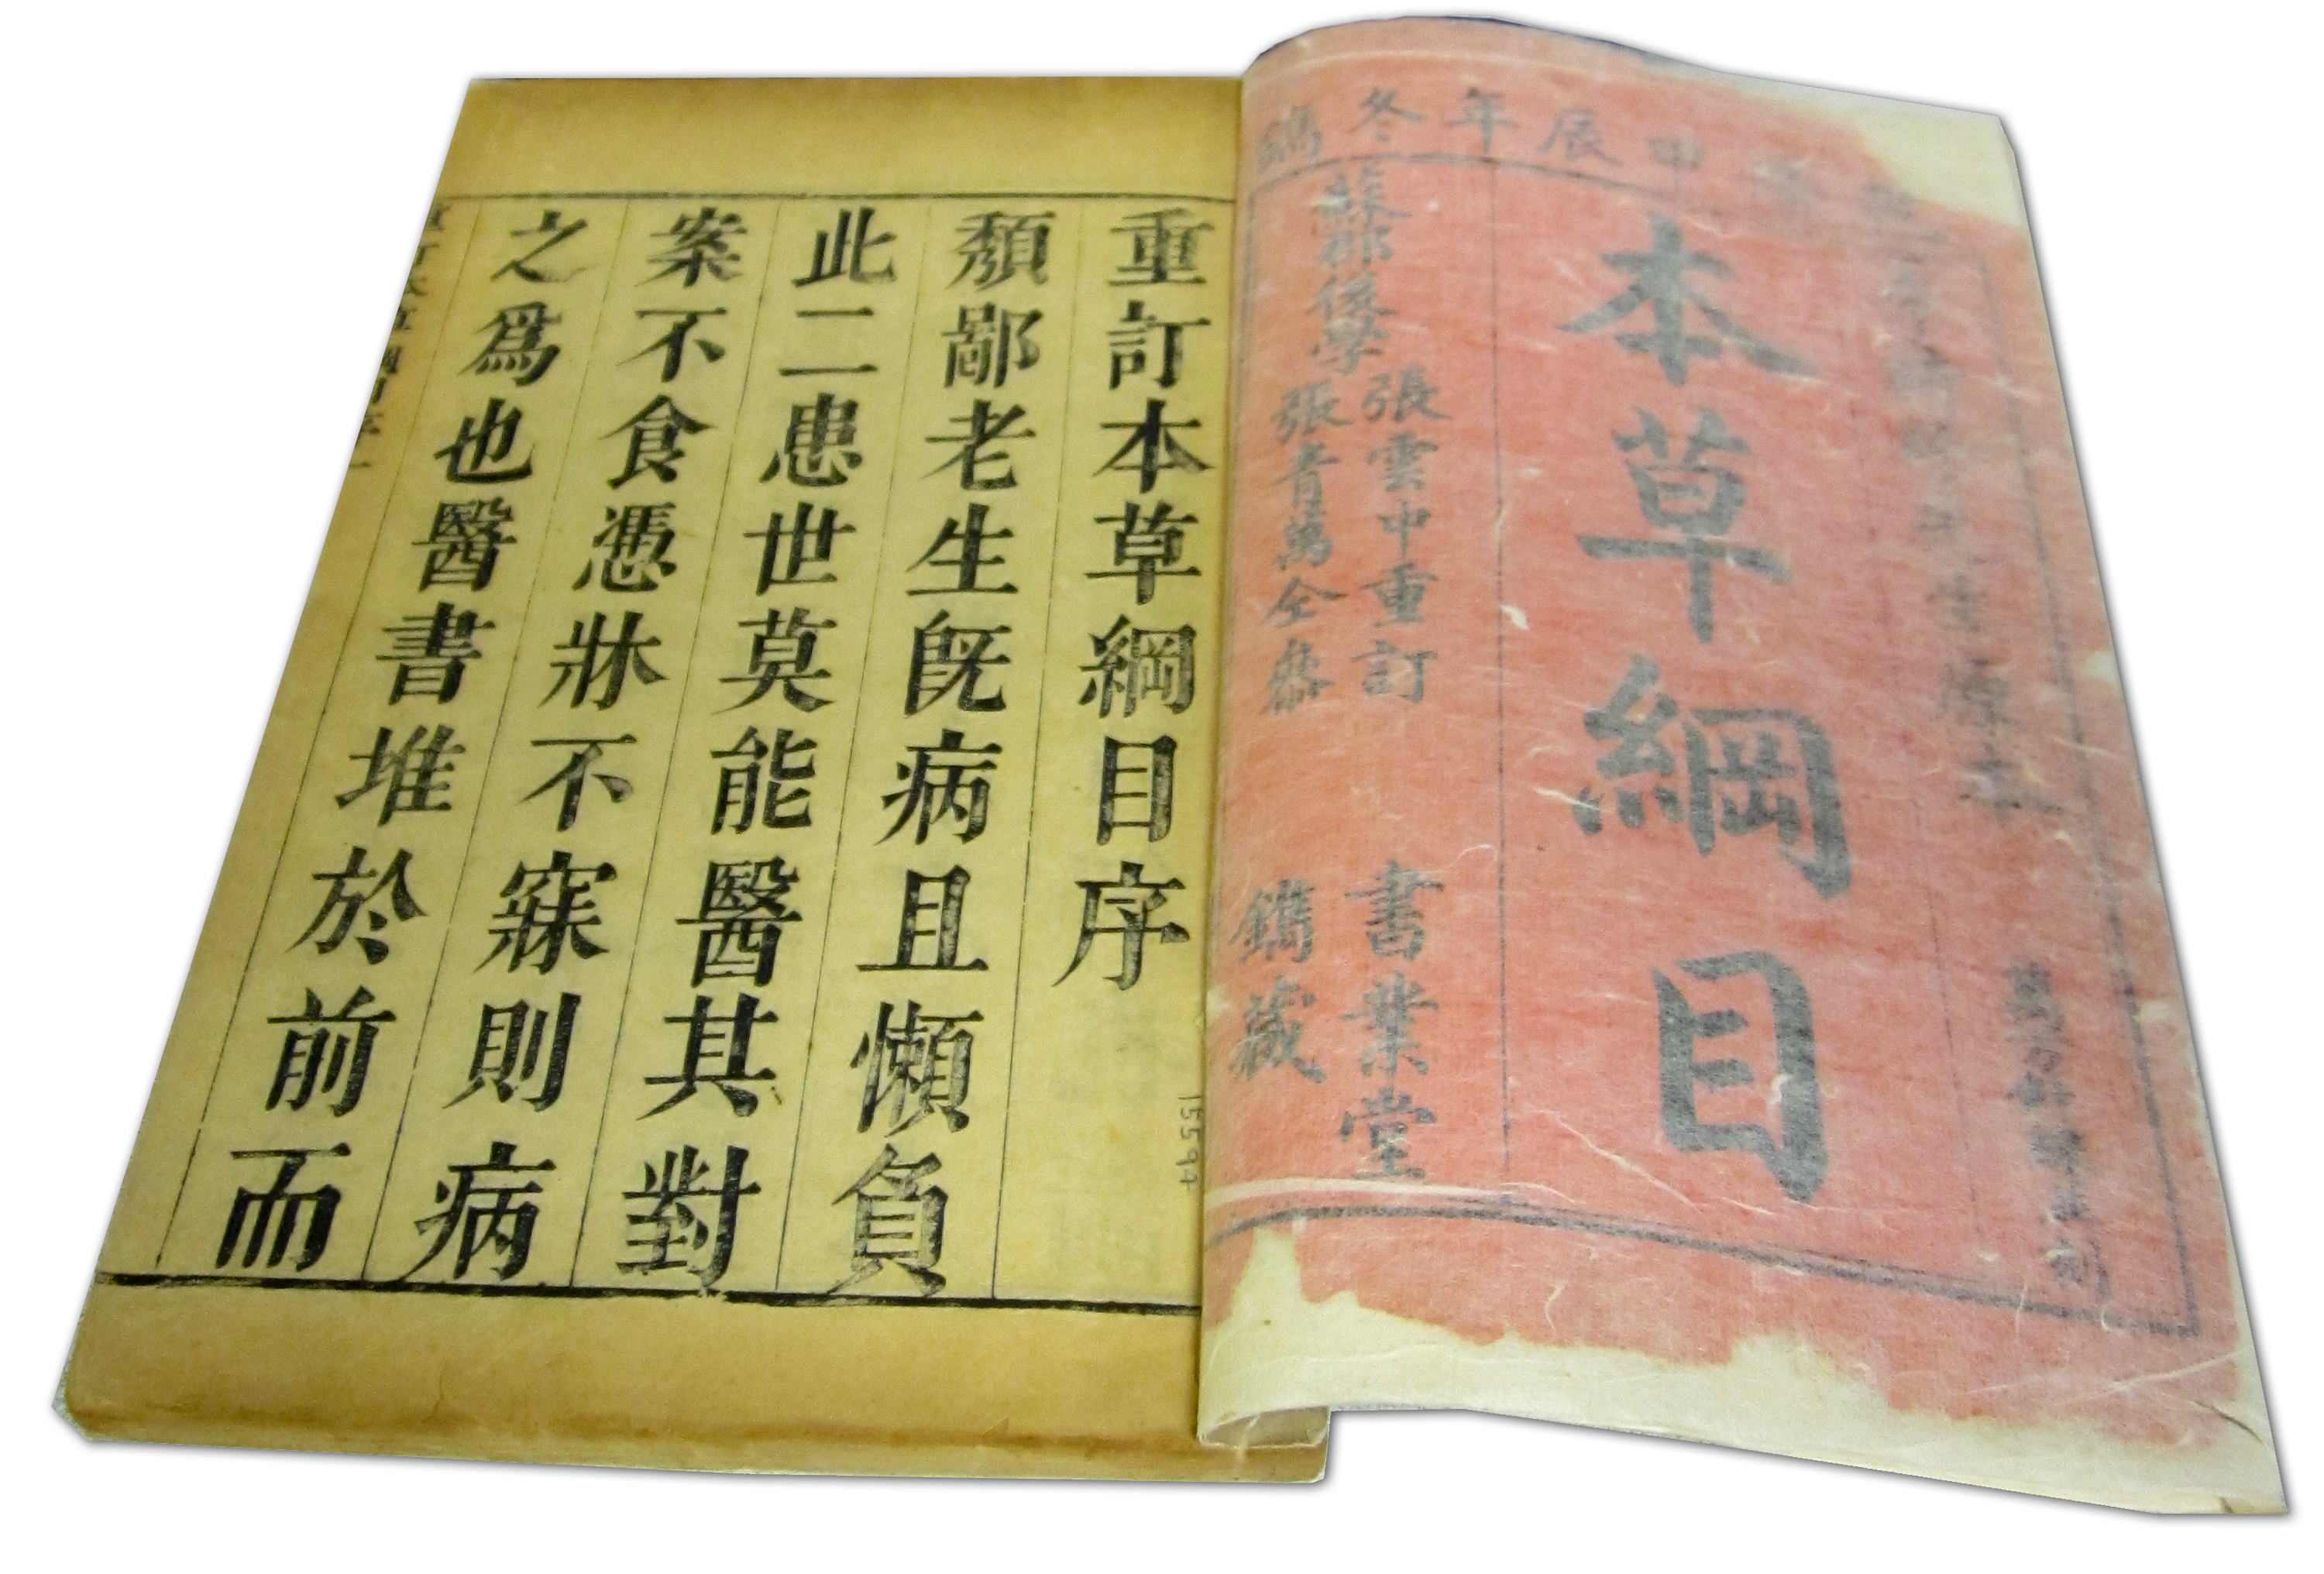 甲辰年冬鐫
先生原本
本草綱目
蘇郡後學
張雲中重訂
張青萬仝參
書業堂
鐫藏
重訂本草綱目序
頽鄙老生既病且懶負
此二患世莫能醫其對
案不食憑牀不寐則病
之爲也醫書堆於前而